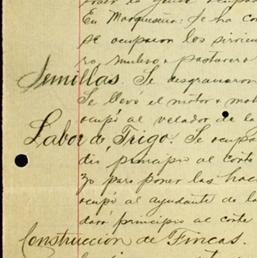 En Morquecho: Se ha con
se ocuparon los sirvien
Semillas. Se desgranaron
Se llevó el motor a mo
ocupó al velador de la
Labor de Trigo. Se ocupa
dio principio al corte
zo para poner las hac
ocupó al ayudante de la
dará principio al corte
Construcción de Fincas.